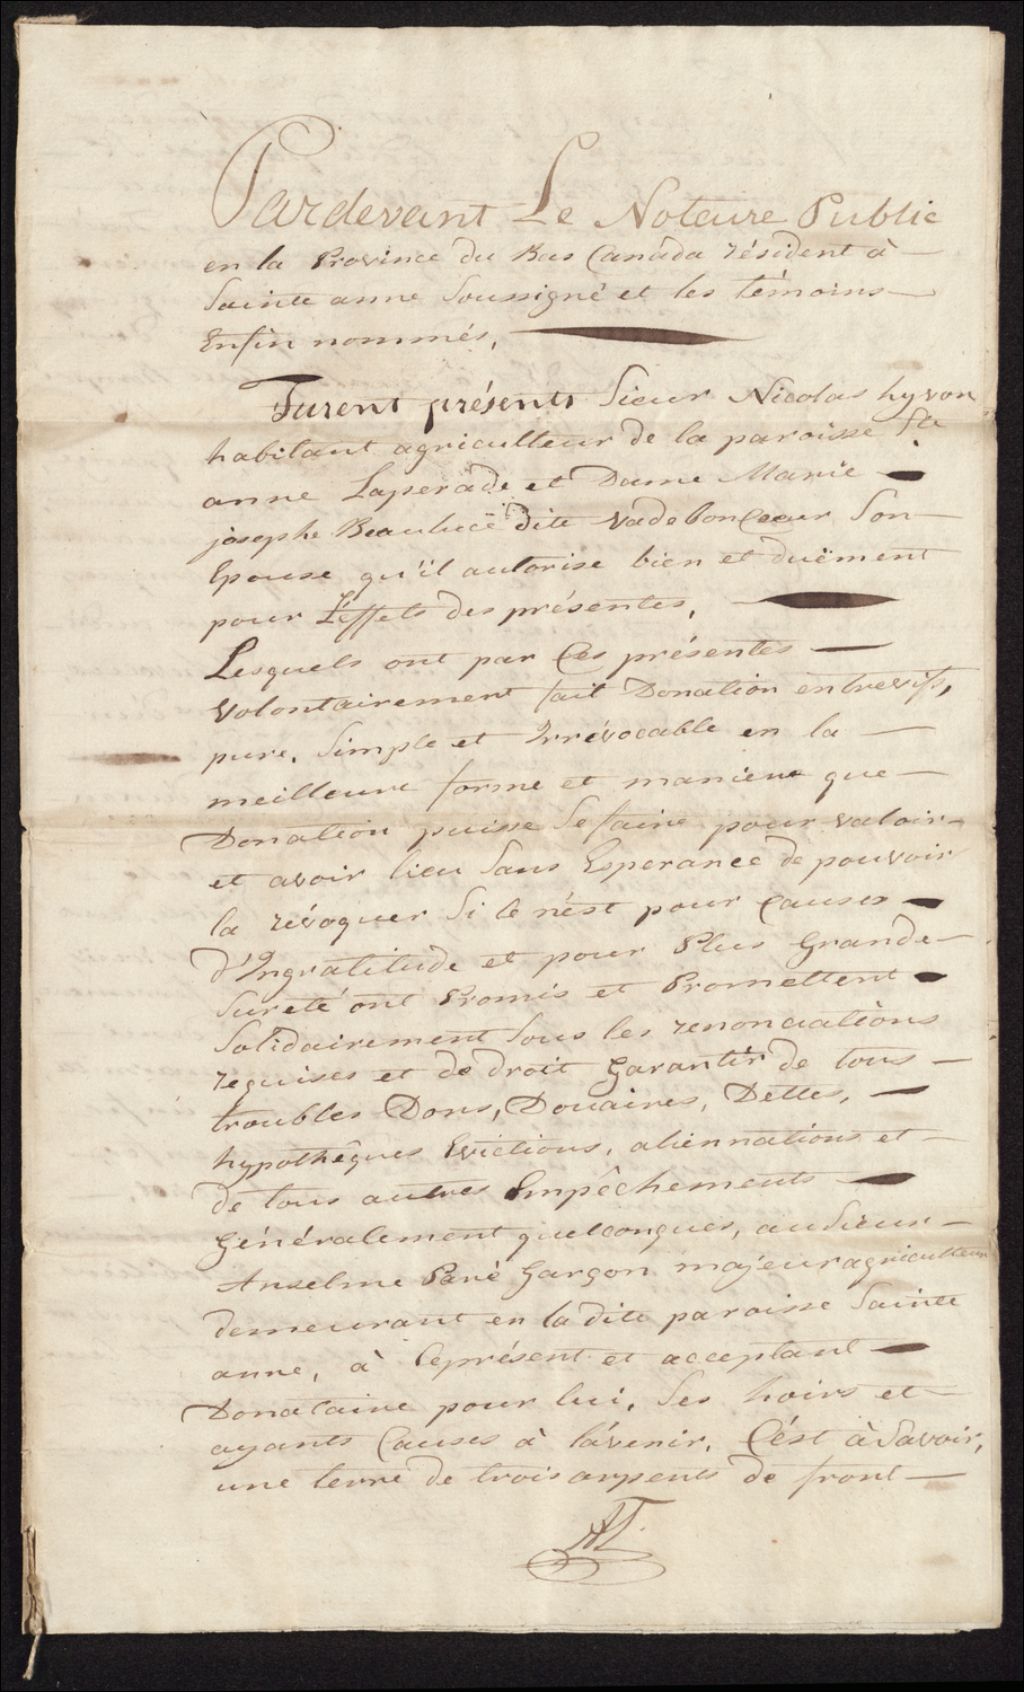 Pardevant Le Notaire Public
en la Province du Bas Canada résident à —
Sainte anne Soussigné et les témoins —
Enfin nommés, —
Furent présents Sieur Nicolas hyvon
habitant agriculteur de la paroisse Ste
anne Laperade et Dame Marie —
josephe Beaulucë dite vadebonCœur Son
Epouse qu'il autorise bien et duëment
pour L'éffets des présentes, —
Lesquels ont par Ces présentes —
volontairement fait Donation entrevifs,
pure, Simple et Irrévocable en la —
meilleure forme et maniere que —
Donation puisse Se faire pour valoir —
et avoir lieu Sans Esperance de pouvoir
la révoquer Si le n'ést pour Causes —
d'Ingratitude et pour Plus Grande —
Sureté ont Promis et Promettent —
Solidairement Sous les renonciations
requises et de droit Garantir de tous —
troubles Dons, Douaires, Dettes, —
hypothêques Evictions, aliennations et —
de tous autres Empêchements —
Généralement quelconques, au Sieur —
Anselme Paré Garçon majeur agriculteur
demeurant en la dite paroisse Sainte
anne, à Ceprésent et acceptant —
Donataire pour lui, Ses hoirs et —
ayants Causes à l'avenir. C'ést à Savoir,
une terre de trois arpents de front —